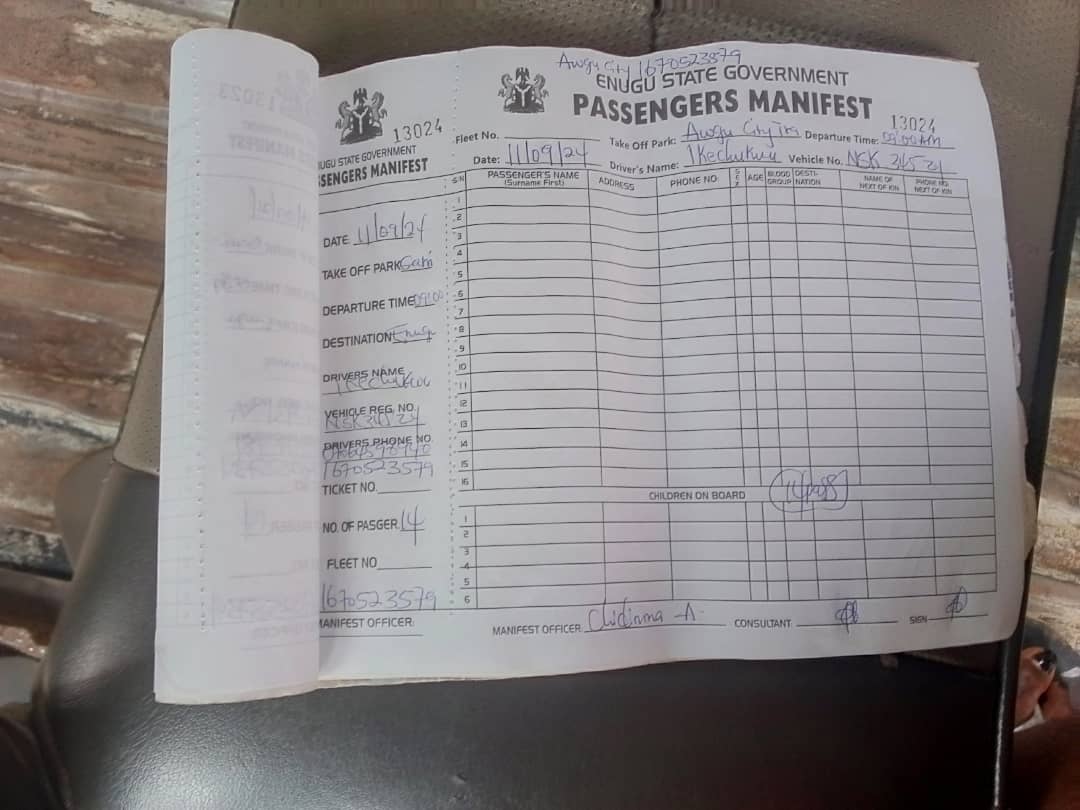 13024
ENUGU STATE GOVERNMENT
PASSENGERS MANIFEST
DATE 11/09/24
TAKE OFF PARK
DEPARTURE TIME 09:00
DESTINATION Enugu
DRIVERS NAME
Ikechukwu
VEHICLE REG. NO.
NSK 345 24
DRIVERS PHONE NO.
1670523579
TICKET NO.
NO. OF PASGER. 14
FLEET NO
1670523579
MANIFEST OFFICER:
Awgu City 1670523579
ENUGU STATE GOVERNMENT
PASSENGERS MANIFEST
13024
Fleet No. Take Off Park: Awgu City Departure Time: 09:00AM
Date: 11/09/24 Driver's Name: Ikechukwu Vehicle No. NSK
S/N PASSENGER'S NAME (Surname First) ADDRESS PHONE NO. SEX AGE BLOOD GROUP DESTI-NATION NAME OF NEXT OF KIN PHONE NO. NEXT OF KIN
1
2
3
4
5
6
7
8
9
10
11
12
13
14
15
16
CHILDREN ON BOARD
1
2
3
4
5
6
MANIFEST OFFICER Chidinma A. CONSULTANT SIGN